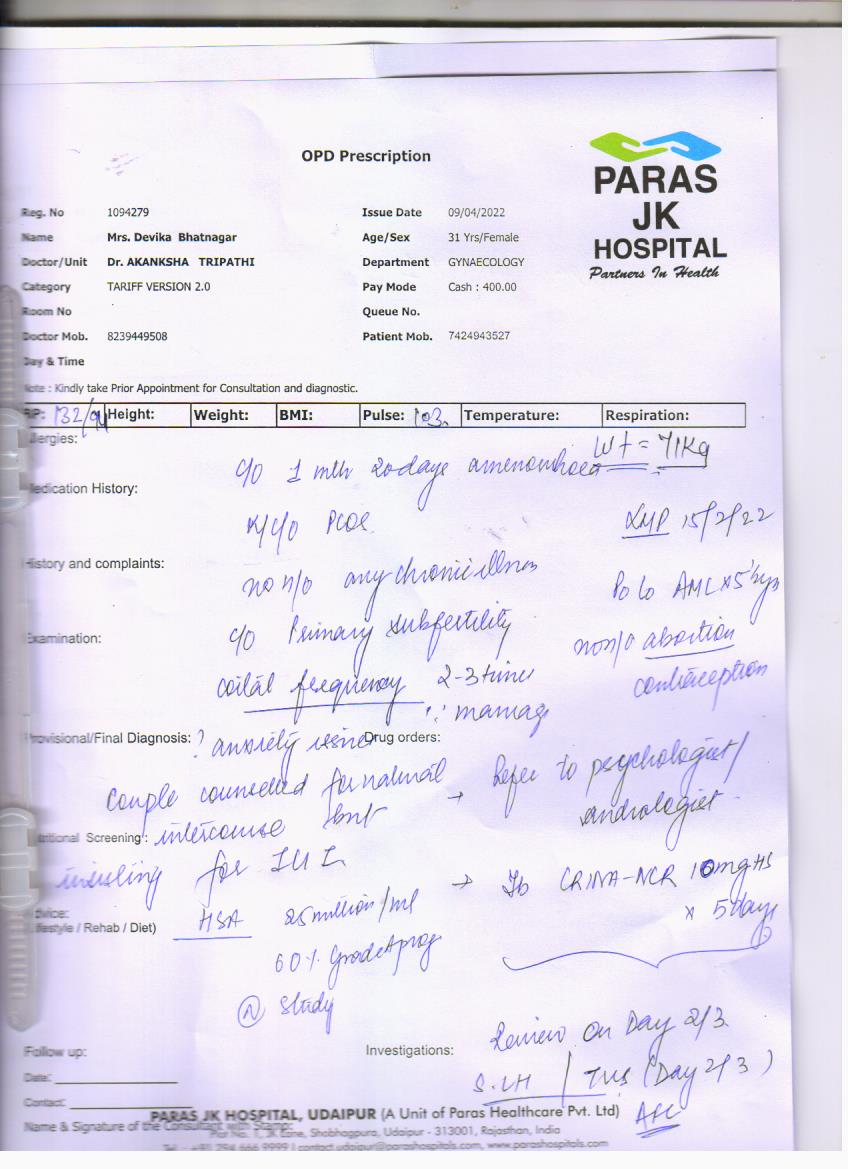 OPD Prescription
PARAS
JK
HOSPITAL
Partners In Health
Reg. No 1094279 Issue Date 09/04/2022
Name Mrs. Devika Bhatnagar Age/Sex 31 Yrs/Female
Doctor/Unit Dr. AKANKSHA TRIPATHI Department GYNAECOLOGY
Category TARIFF VERSION 2.0 Pay Mode Cash : 400.00
Room No Queue No.
Doctor Mob. 8239449508 Patient Mob. 7424943527
Day & Time
Note : Kindly take Prior Appointment for Consultation and diagnostic.
BP: 132/ Height: Weight: BMI: Pulse: 103. Temperature: Respiration:
Allergies: Wt = 71Kg
c/o 1 mth 20 days amenorrhoea
Medication History:
K/c/o PCOS LMP 15/2/22
History and complaints:
no h/o any chronic illness
c/o Primary subfertility no h/o abortion
Examination:
coital frequency 2-3 times contraception
Provisional/Final Diagnosis: ? anxiety issue Drug orders:
Couple counselled for natural → Refer to psychologist/
andrologist
Nutritional Screening: intercourse but
for IUI → Tb CRINA-NCR 10mg HS
x 5 days
Advice:
(Lifestyle / Rehab / Diet) HSA 25 million/ml
60% Grade A prog
(N) study
Review on Day 2/3
Follow up: Investigations:
S. LH / TVS (Day 2/3)
AFC
Date:
Contact:
PARAS JK HOSPITAL, UDAIPUR (A Unit of Paras Healthcare Pvt. Ltd)
Name & Signature of the Consultant with Stamp:
Plot No. 1, JK Lane, Shobhagpura, Udaipur - 313001, Rajasthan, India
Tel. : +91 294 666 9999 | contact.udaipur@parashospitals.com, www.parashospitals.com